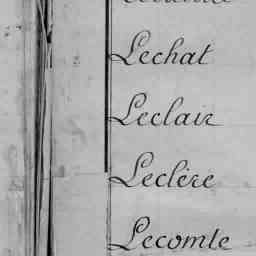 Lechat
Leclair
Leclére
Lecomte